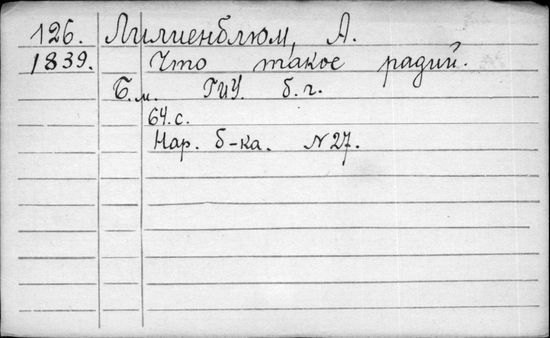 126. Лилиенблюм, А.
1839. Что такое радий.
Б.м. ГИУ. б.г.
64.с.
Нар. б-ка. N27.